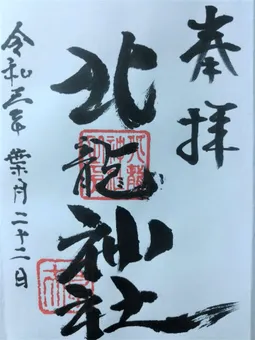 奉拝
北龍神社
令和三年葉月二十二日